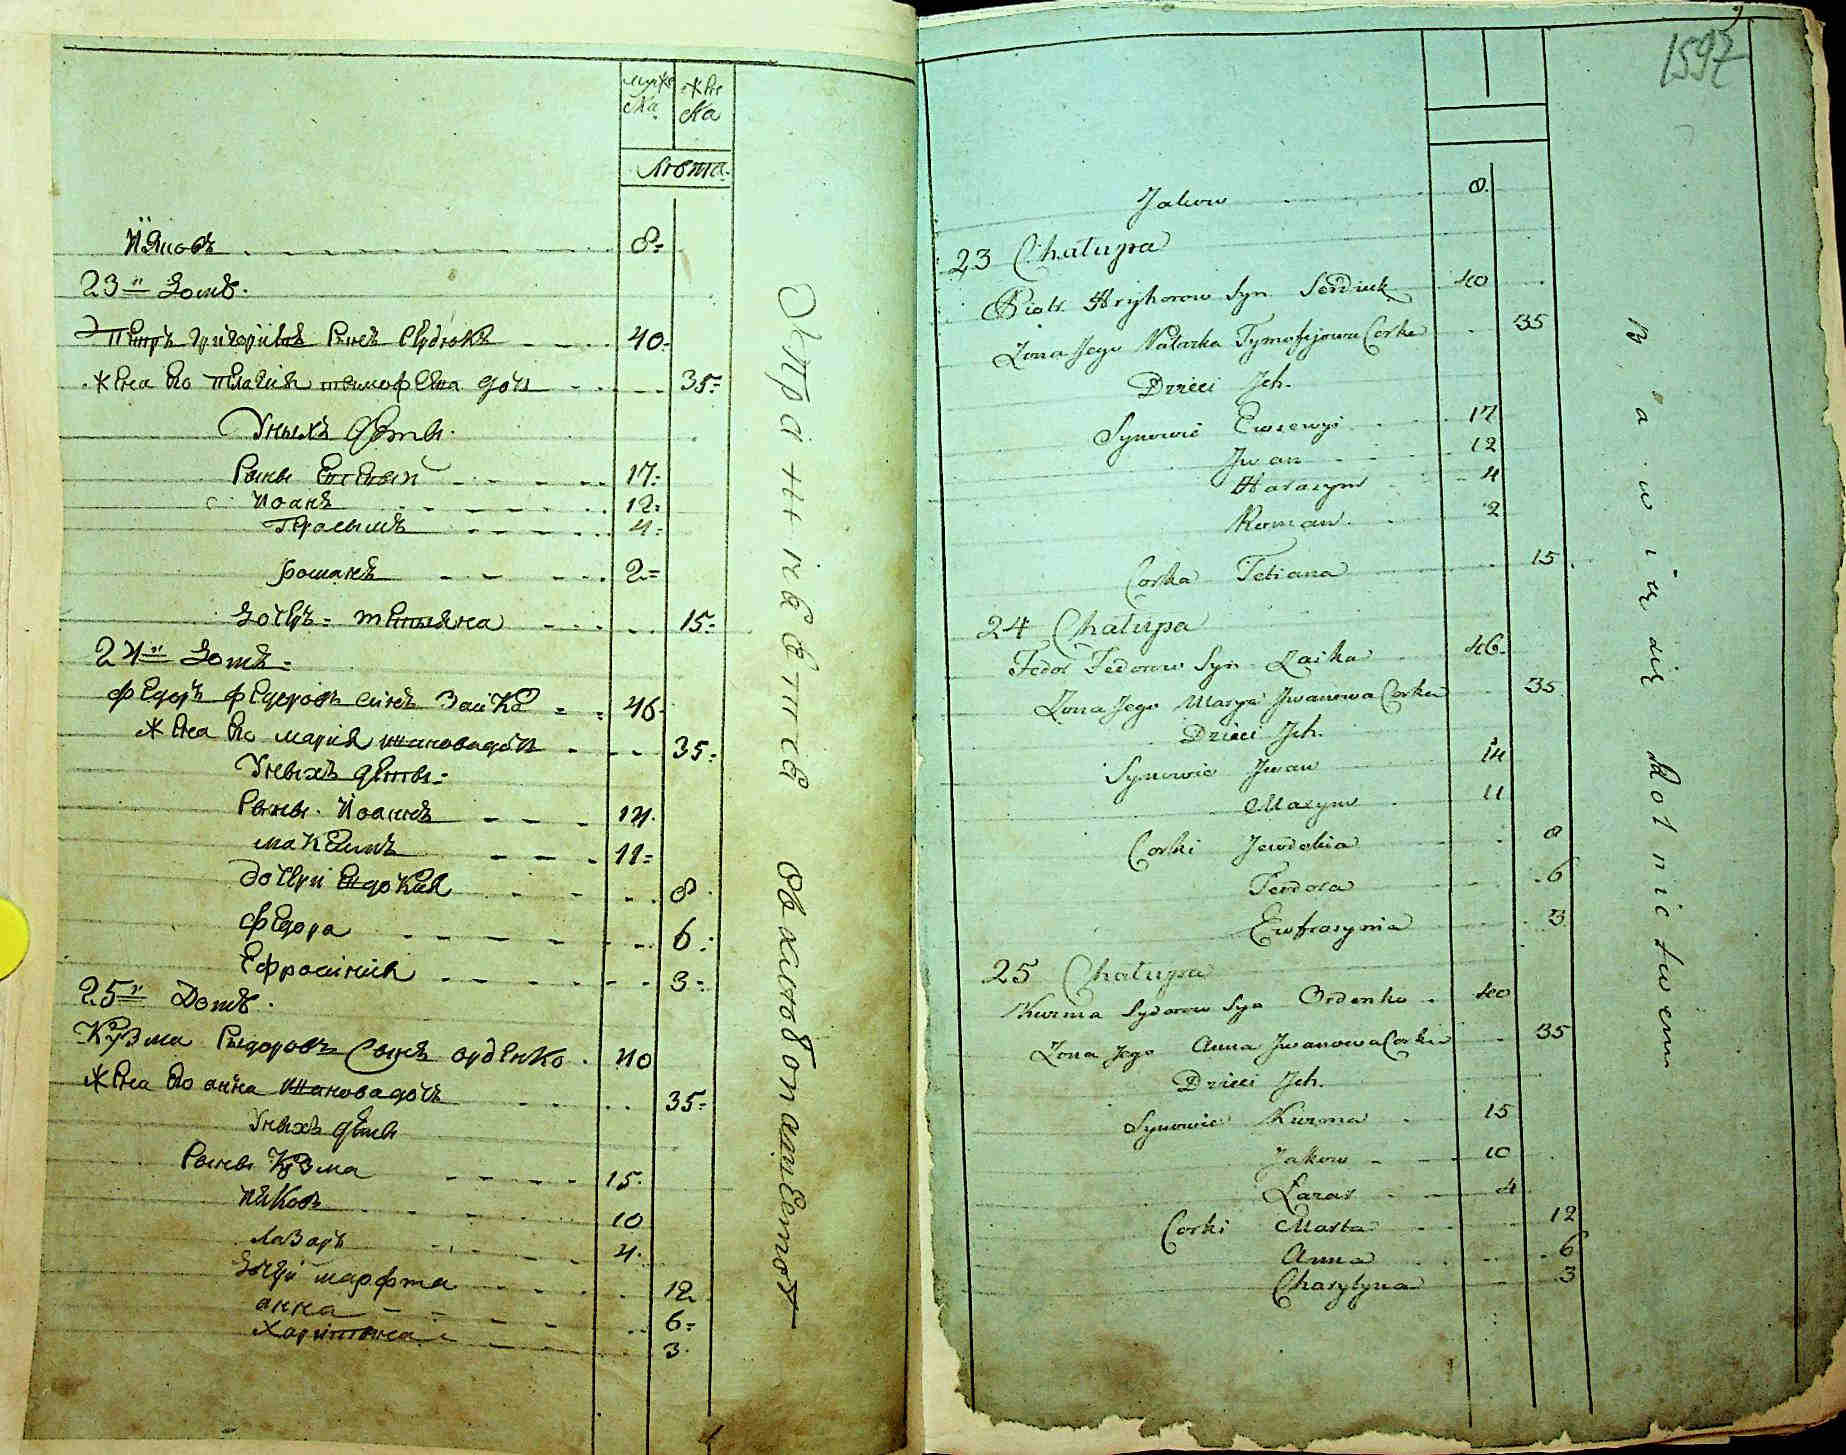 мужеска женска
лѣта
Ияковъ 8
23й Домъ
Петръ григориевъ Сынъ Сердюкъ 40
жена Его Пелагия тимофеева дочь 35
У них дѣти
Сыны Евсевый 17
Иоанъ 12
Герасымъ 4
романъ 2
Дочерь тетьяна 15
24й Домъ
федоръ федоровъ синъ Заика 46
жена Его мария иванова дочь 35
У ныхъ дѣты
Сыны Иоаннъ 14
максимъ 11
дочери Евдокия 8
федора 6
Ефросиния 3
25й Домъ
Кузма Сыдоровъ Сынъ орденко 40
жена Его анна иванова дочь 35
У ныхъ дѣты
Сыны Кузма 15
Иаковъ 10
лазаръ 4
дочери марфта 12
анна 6
Харитина 3
Упражняются въ хлебопашествѣ
1597
Jakow 8
23 Chałupa
Piotr Hryhorow Syn Serdiuk 40
Zona Jego Natarka Tymofijowa Corka 35
Dzieci Jch.
Synowie Ewsewyi 17
Jwan 12
Harasym 4
Roman 2
Corka Tetiana 15
24 Chałupa
Fedor Fedorow Syn Zaika 46
Zona Jego Marya Jwanowa Corka 35
Dzieci Jch.
Synowie Jwan 14
Maxym 11
Corki Jewdokia 8
Teodora 6
Ewfrasynia 3
25 Chałupa
Kuzma Sydorow Syn Ordenko 40
Zona Jego Anna Jwanowa Corka 35
Dzieci Jch.
Synowie Kuzma 15
Jakow 10
Łazar 4
Corki Marta 12
Anna 6
Charytyna 3
Bawią się Rolnictwem